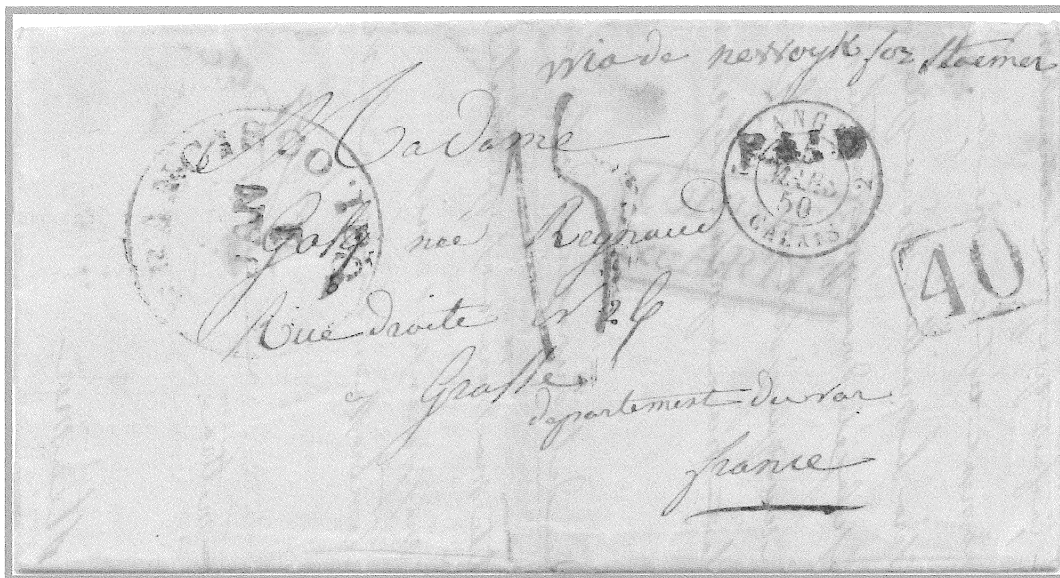 via de newoyk for Staemer
Madame
Galy née Reynaud
Rue droite N
a Grasse
departement du var
france
SAN FRANCISCO CAL
JAN
PAID
MARS
50
CALAIS 2
40
15